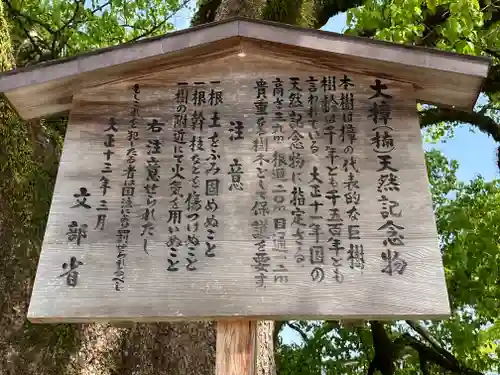 大樟(楠)天然記念物
本樹は樟の代表的な巨樹
樹齢は千年とも千五百年とも
言われている、大正十一年国の
天然記念物に指定さる
高さ三九m根道二〇m目通一二m
貴重な樹木として保護を要す
注意
一根土をふみ固めぬこと
一根幹枝などを傷つけぬこと
一樹の附近にて火気を用いぬこと
右注意せられたし
もしこれを犯した者は国法により罰せられるべし
大正十三年三月
文部省